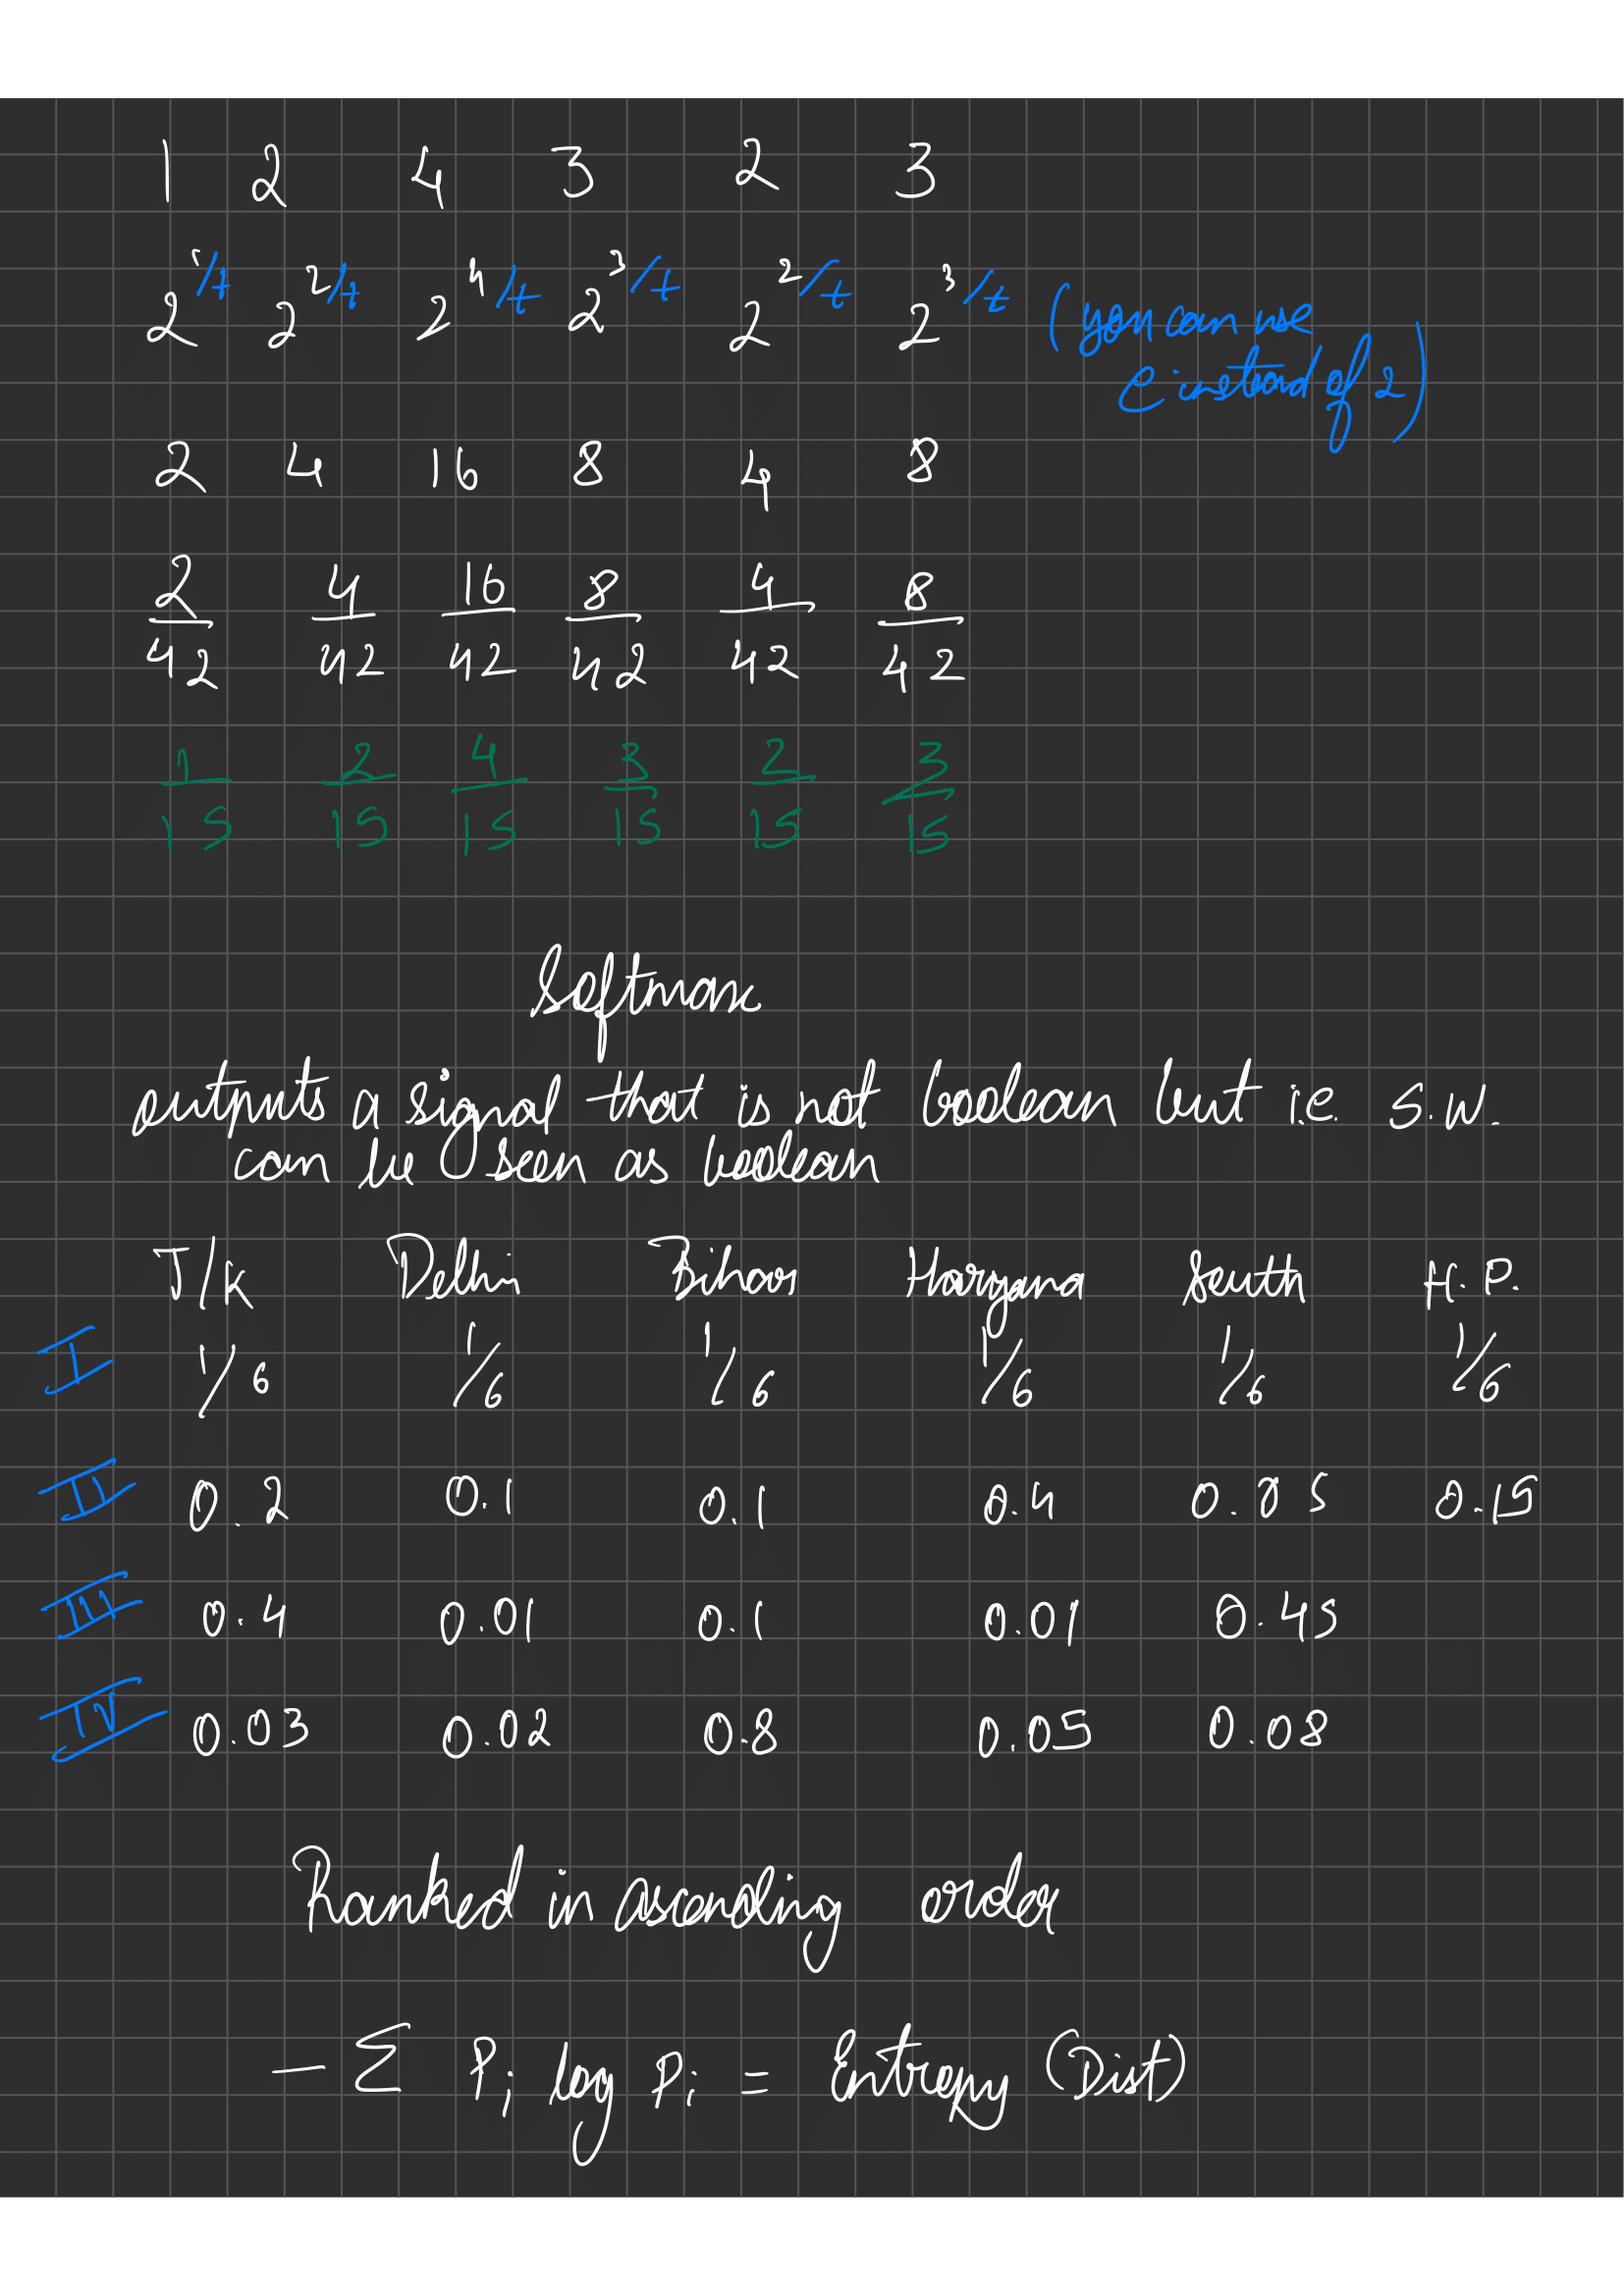 1 2 4 3 2 3
2^1/t 2^2/t 2^4/t 2^3/t 2^2/t 2^3/t (you can use
e instead of 2)
2 4 16 8 4 8
2/42 4/42 16/42 8/42 4/42 8/42
1/15 2/15 4/15 3/15 2/15 3/15
Softmax
outputs a signal that is not boolean but i.e. s.w.
can be seen as boolean
J/K Delhi Bihar Haryana South H.P.
I 1/6 1/6 1/6 1/6 1/6 1/6
II 0.2 0.1 0.1 0.4 0.05 0.15
III 0.4 0.01 0.1 0.01 0.45
IV 0.03 0.02 0.8 0.05 0.08
Ranked in ascending order
- Σ Pi log Pi = Entropy (Dist)